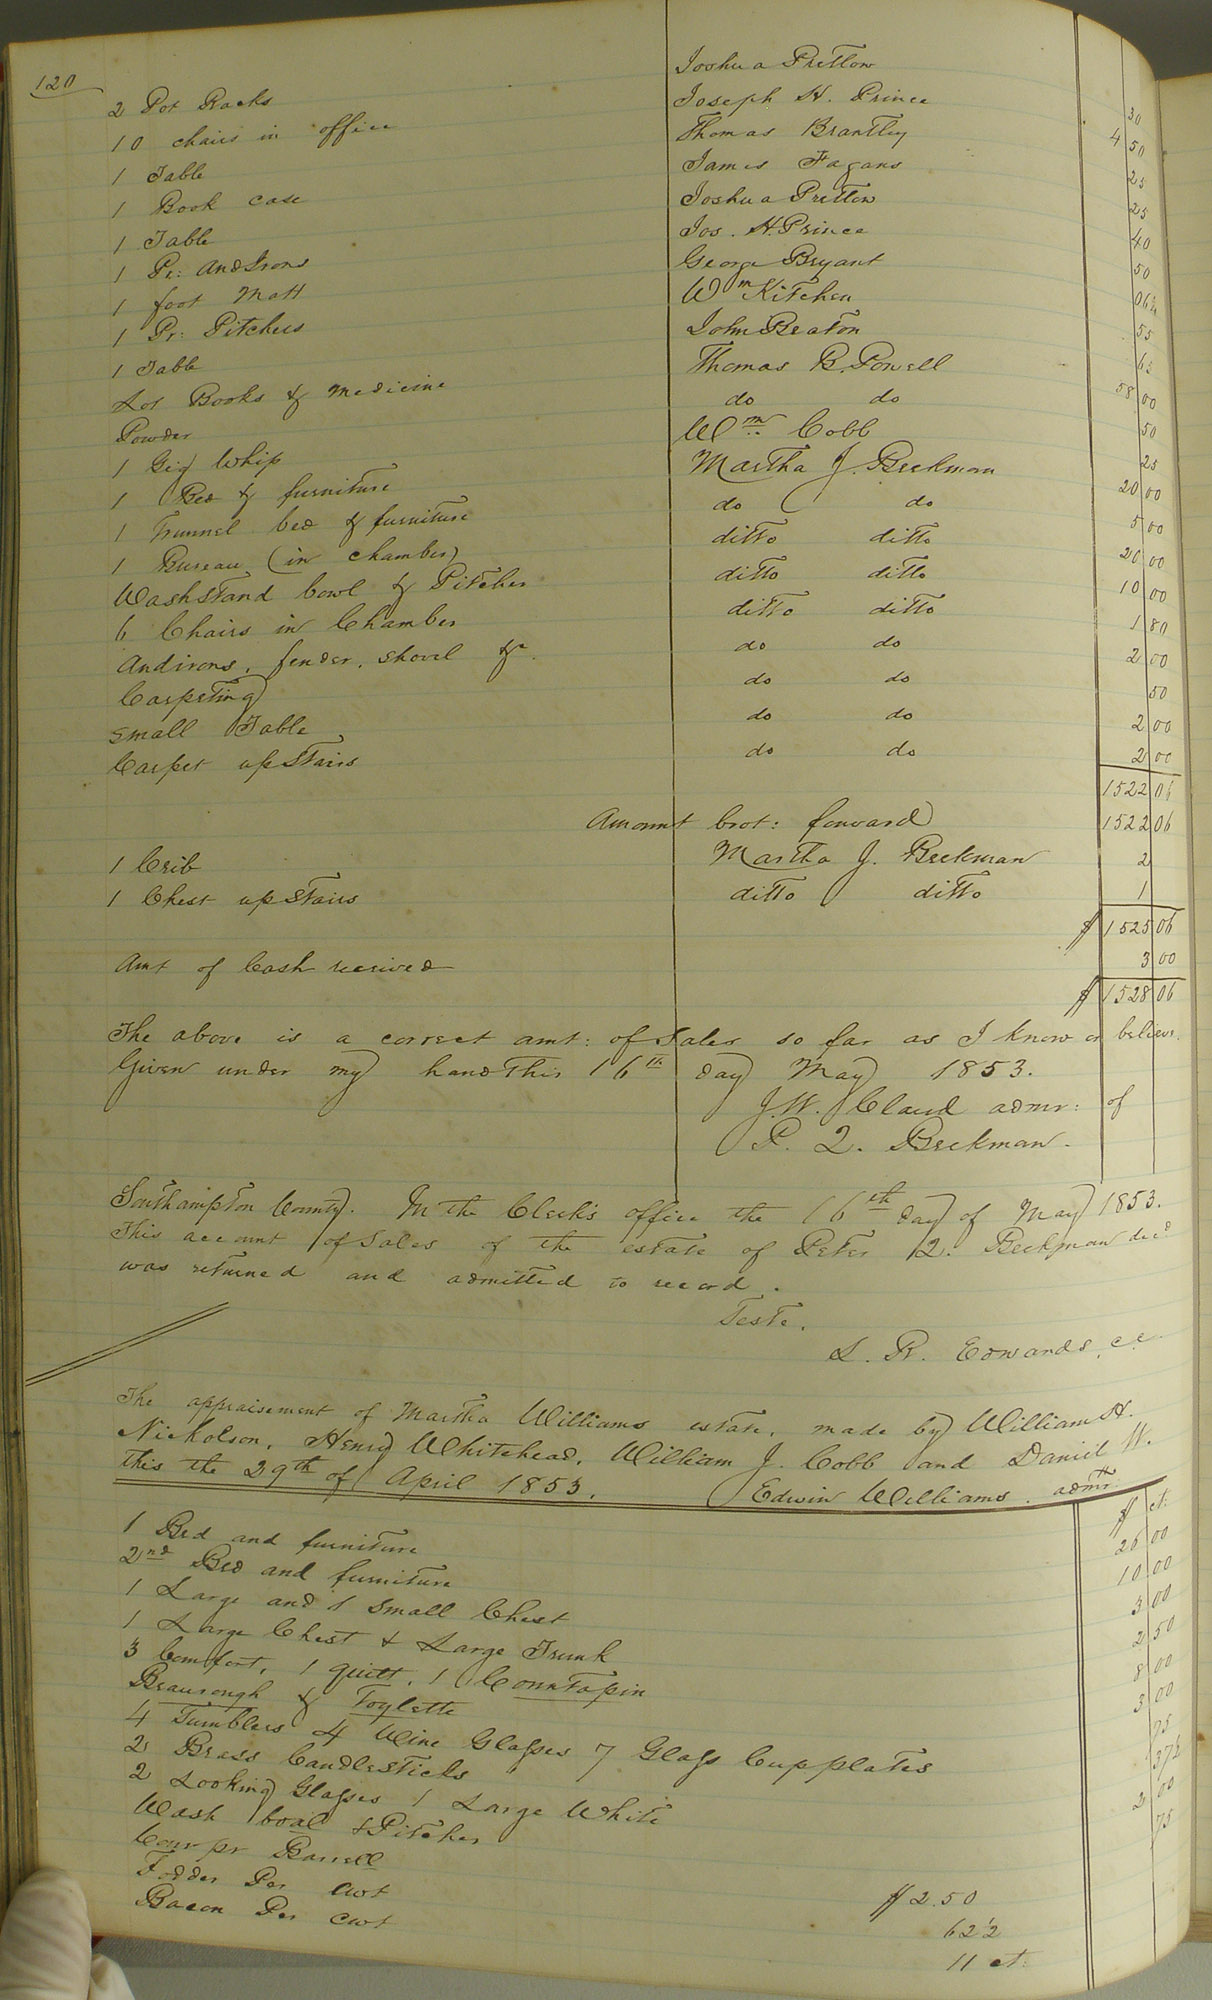 120
2 Pot Racks Joshua Pretlow 30
10 chairs in office Joseph H. Prince 4 50
1 Table Thomas Brantley 25
1 Book case James Fagans 25
1 Table Joshua Pretlow 40
1 Pr: AndIrons Jos. H. Prince 50
1 foot Matt George Bryant 06¼
1 Pr: Pitchers Wm Kitchen 55
1 Table John Beaton 63
Lot Books & Medicine Thomas B. Powell 58 00
Powder do do 50
1 Gig Whip Wm Cobb 25
1 Bed & furniture Martha J. Beekman 20 00
1 Trunnel bed & furniture do do 5 00
1 Bureau (in chamber) ditto ditto 20 00
Washstand bowl & Pitcher ditto ditto 10 00
6 Chairs in Chamber ditto ditto 1 80
Andirons, fender, shovel &c. do do 2 00
Carpeting do do 50
small Table do do 2 00
Carpet upstairs do do 2 00
1522 06
Amount brot: forward 1522 06
1 Crib Martha J. Beekman 2
1 Chest upstairs ditto ditto 1
$ 1525 06
Amt of Cash received 3 00
$ 1528 06
The above is a correct amt: of Sales so far as I know or believe.
Given under my hand this 16th day May 1853.
J. W. Claud admr: of
P. Q. Beekman.
Southampton County. In the Clerk's office the 16th day of May 1853.
This account of Sales of the estate of Peter Q. Beekman decd
was returned and admitted to record.
Teste.
L. R. Edwards, cc
The appraisement of Martha Williams estate, made by William H.
Nicholson, Henry Whitehead, William J. Cobb and Daniel W.
this the 29th of April 1853. Edwin Williams. admr
$ ct:
1 Bed and furniture 26 00
2nd Bed and furniture 10 00
1 Large and 1 small Chest 3 00
1 Large Chest & Large Trunk 2 50
3 Comfort, 1 quilt, 1 Countapin 8 00
Beaurough & Toylette 3 00
4 Tumblers 4 Wine Glasses 7 Glass Cupplates 75
2 Brass Candlesticks 37½
2 Looking Glasses 1 Large White 2 00
Wash boal & Pitcher 75
Corn pr Barrell $ 2.50
Fodder Per cwt 62½
Bacon Per cwt 11 ct: